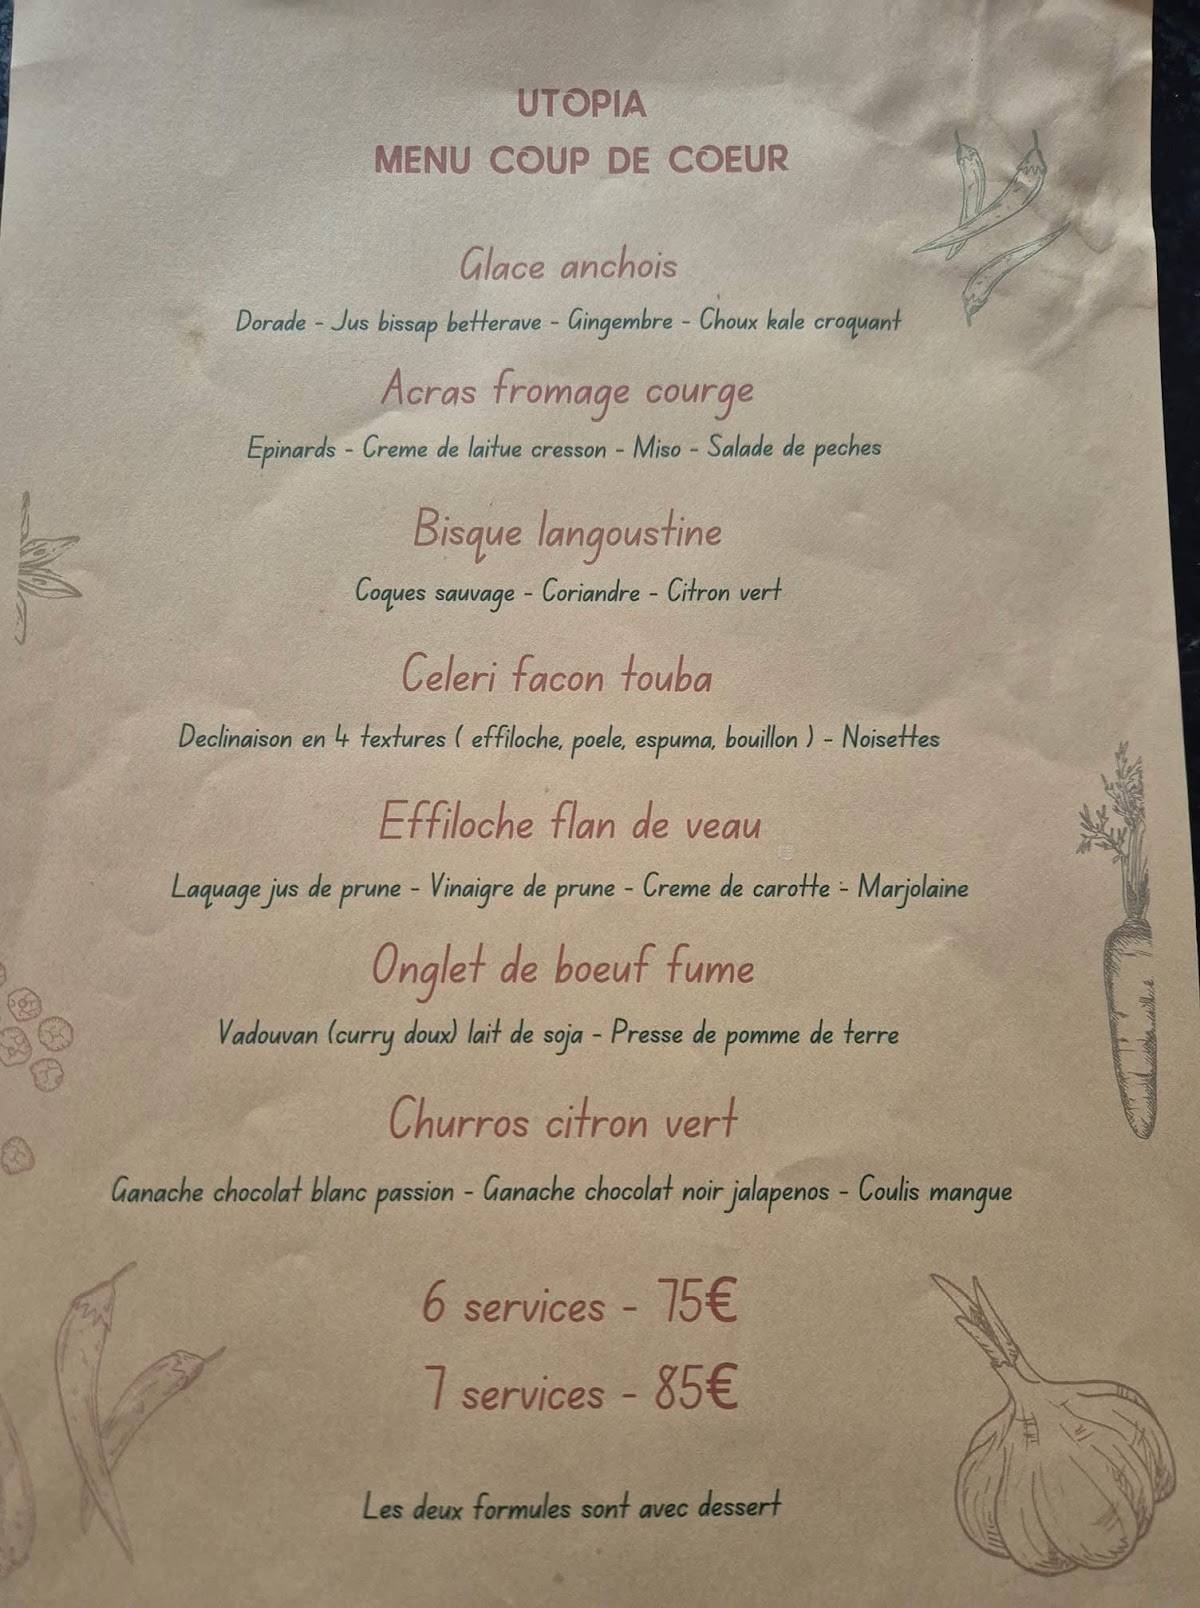 UTOPIA
MENU COUP DE COEUR
Glace anchois
Dorade - Jus bissap betterave - Gingembre - Choux kale croquant
Acras fromage courge
Epinards - Creme de laitue cresson - Miso - Salade de peches
Bisque langoustine
Coques sauvage - Coriandre - Citron vert
Celeri facon touba
Declinaison en 4 textures ( effiloche, poele, espuma, bouillon ) - Noisettes
Effiloche flan de veau
Laquage jus de prune - Vinaigre de prune - Creme de carotte - Marjolaine
Onglet de boeuf fume
Vadouvan (curry doux) lait de soja - Presse de pomme de terre
Churros citron vert
Ganache chocolat blanc passion - Ganache chocolat noir jalapenos - Coulis mangue
6 services - 75€
7 services - 85€
Les deux formules sont avec dessert